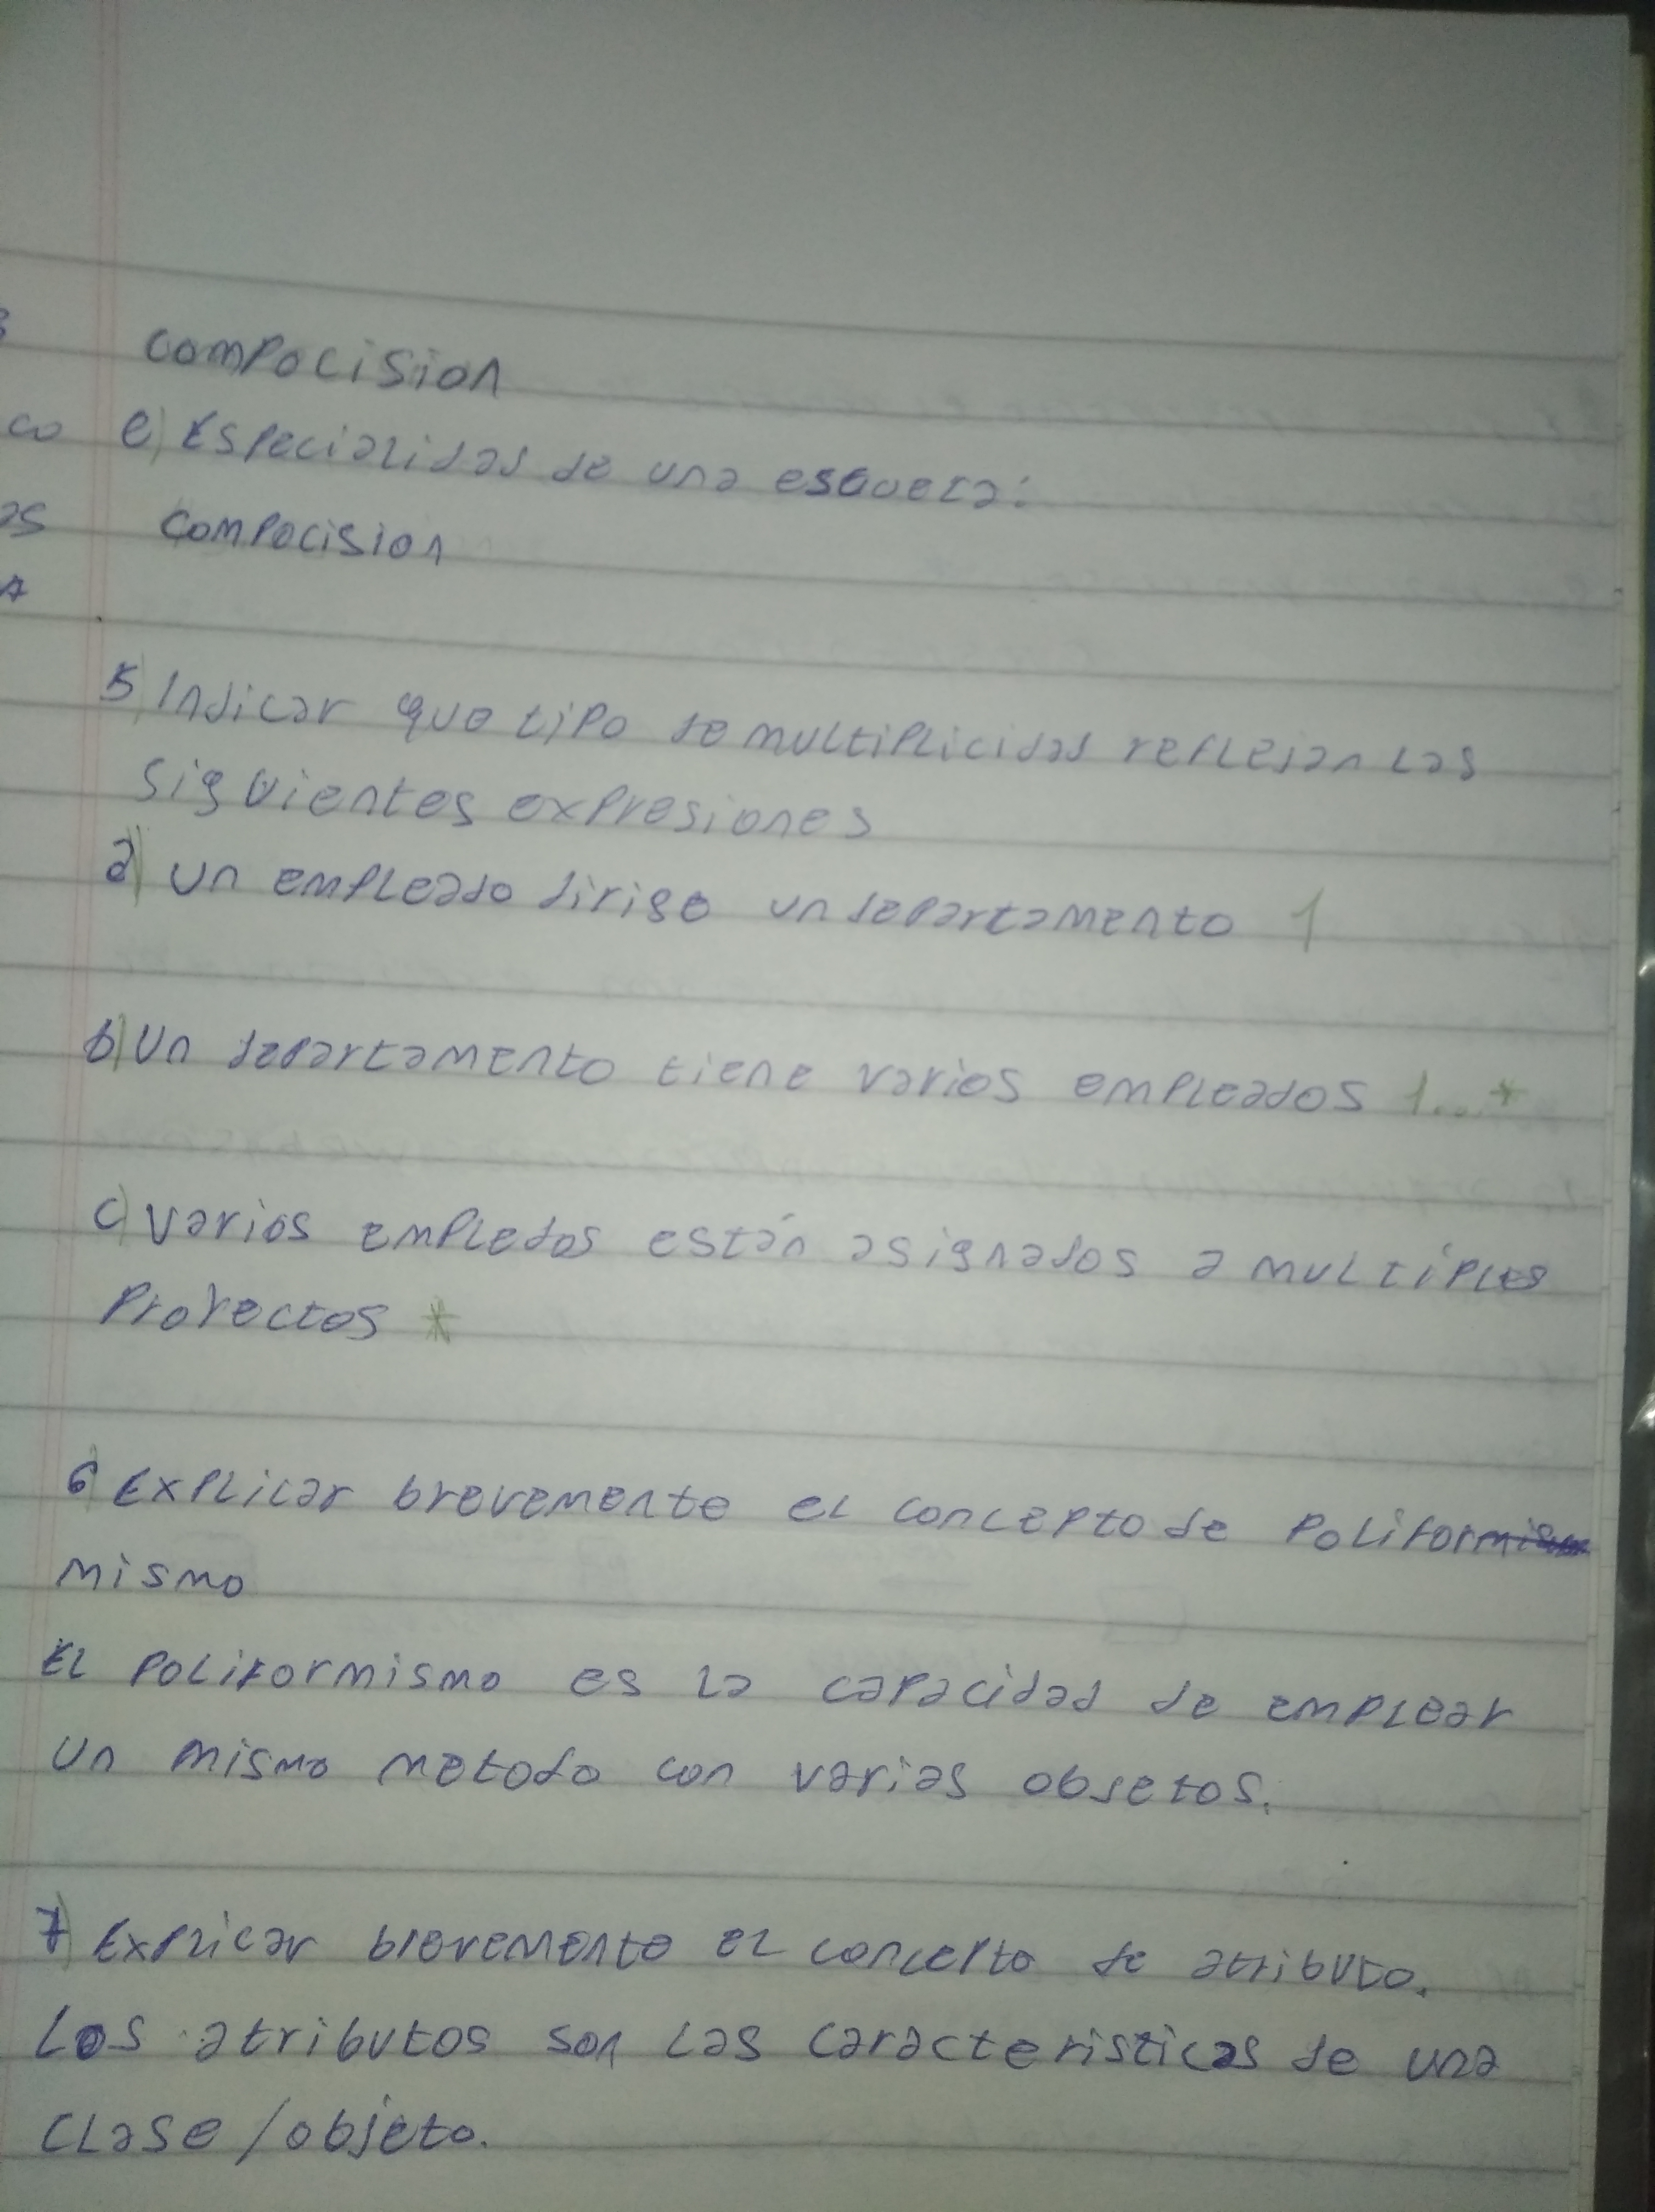 composición
e) Especialidad de una escuela:
compocision
5) Indicar que tipo de multiplicidad reflejan las
siguientes expresiones
a) un empleado dirige un departamento 1
b) Un departamento tiene varios empleados 1...*
c) varios empledos están asignados a multiples
Proyectos *
6) Explicar brevemente el concepto de Poliformism
mismo
El poliformismo es la capacidad de emplear
un mismo metodo con varias objetos.
7) Explicar brevemente el concepto de atributo.
Los atributos son las caracteristicas de una
clase/objeto.